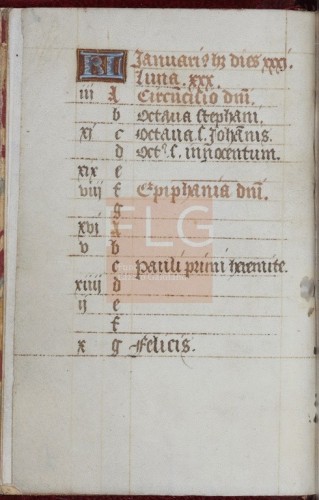 KL Januariꝰ hꝫ dies xxxi.
Luna . xxx.
iii A Circūcisio dnī.
b Octaua stephani.
xi c Octaua s. Johānis.
d Octᵃ s. innocentum.
xix e
viii f Epiphania dnī.
g
xvi A
v b
c Pauli primi heremite.
xiiii d
ii e
f
x g Felicis.
FLG